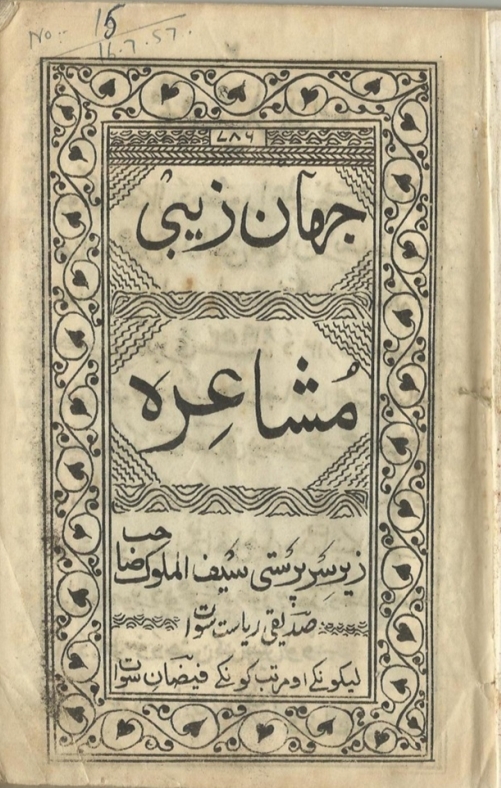 No:- 15
16.7.57.
۷۸۶
جہان زیبی
مُشاعِرہ
زیرِ سرپرستی سیف الملوک صاحب
صدیقی ریاست سوات
لیکونکے او مرتب کونکے فیضان سوات